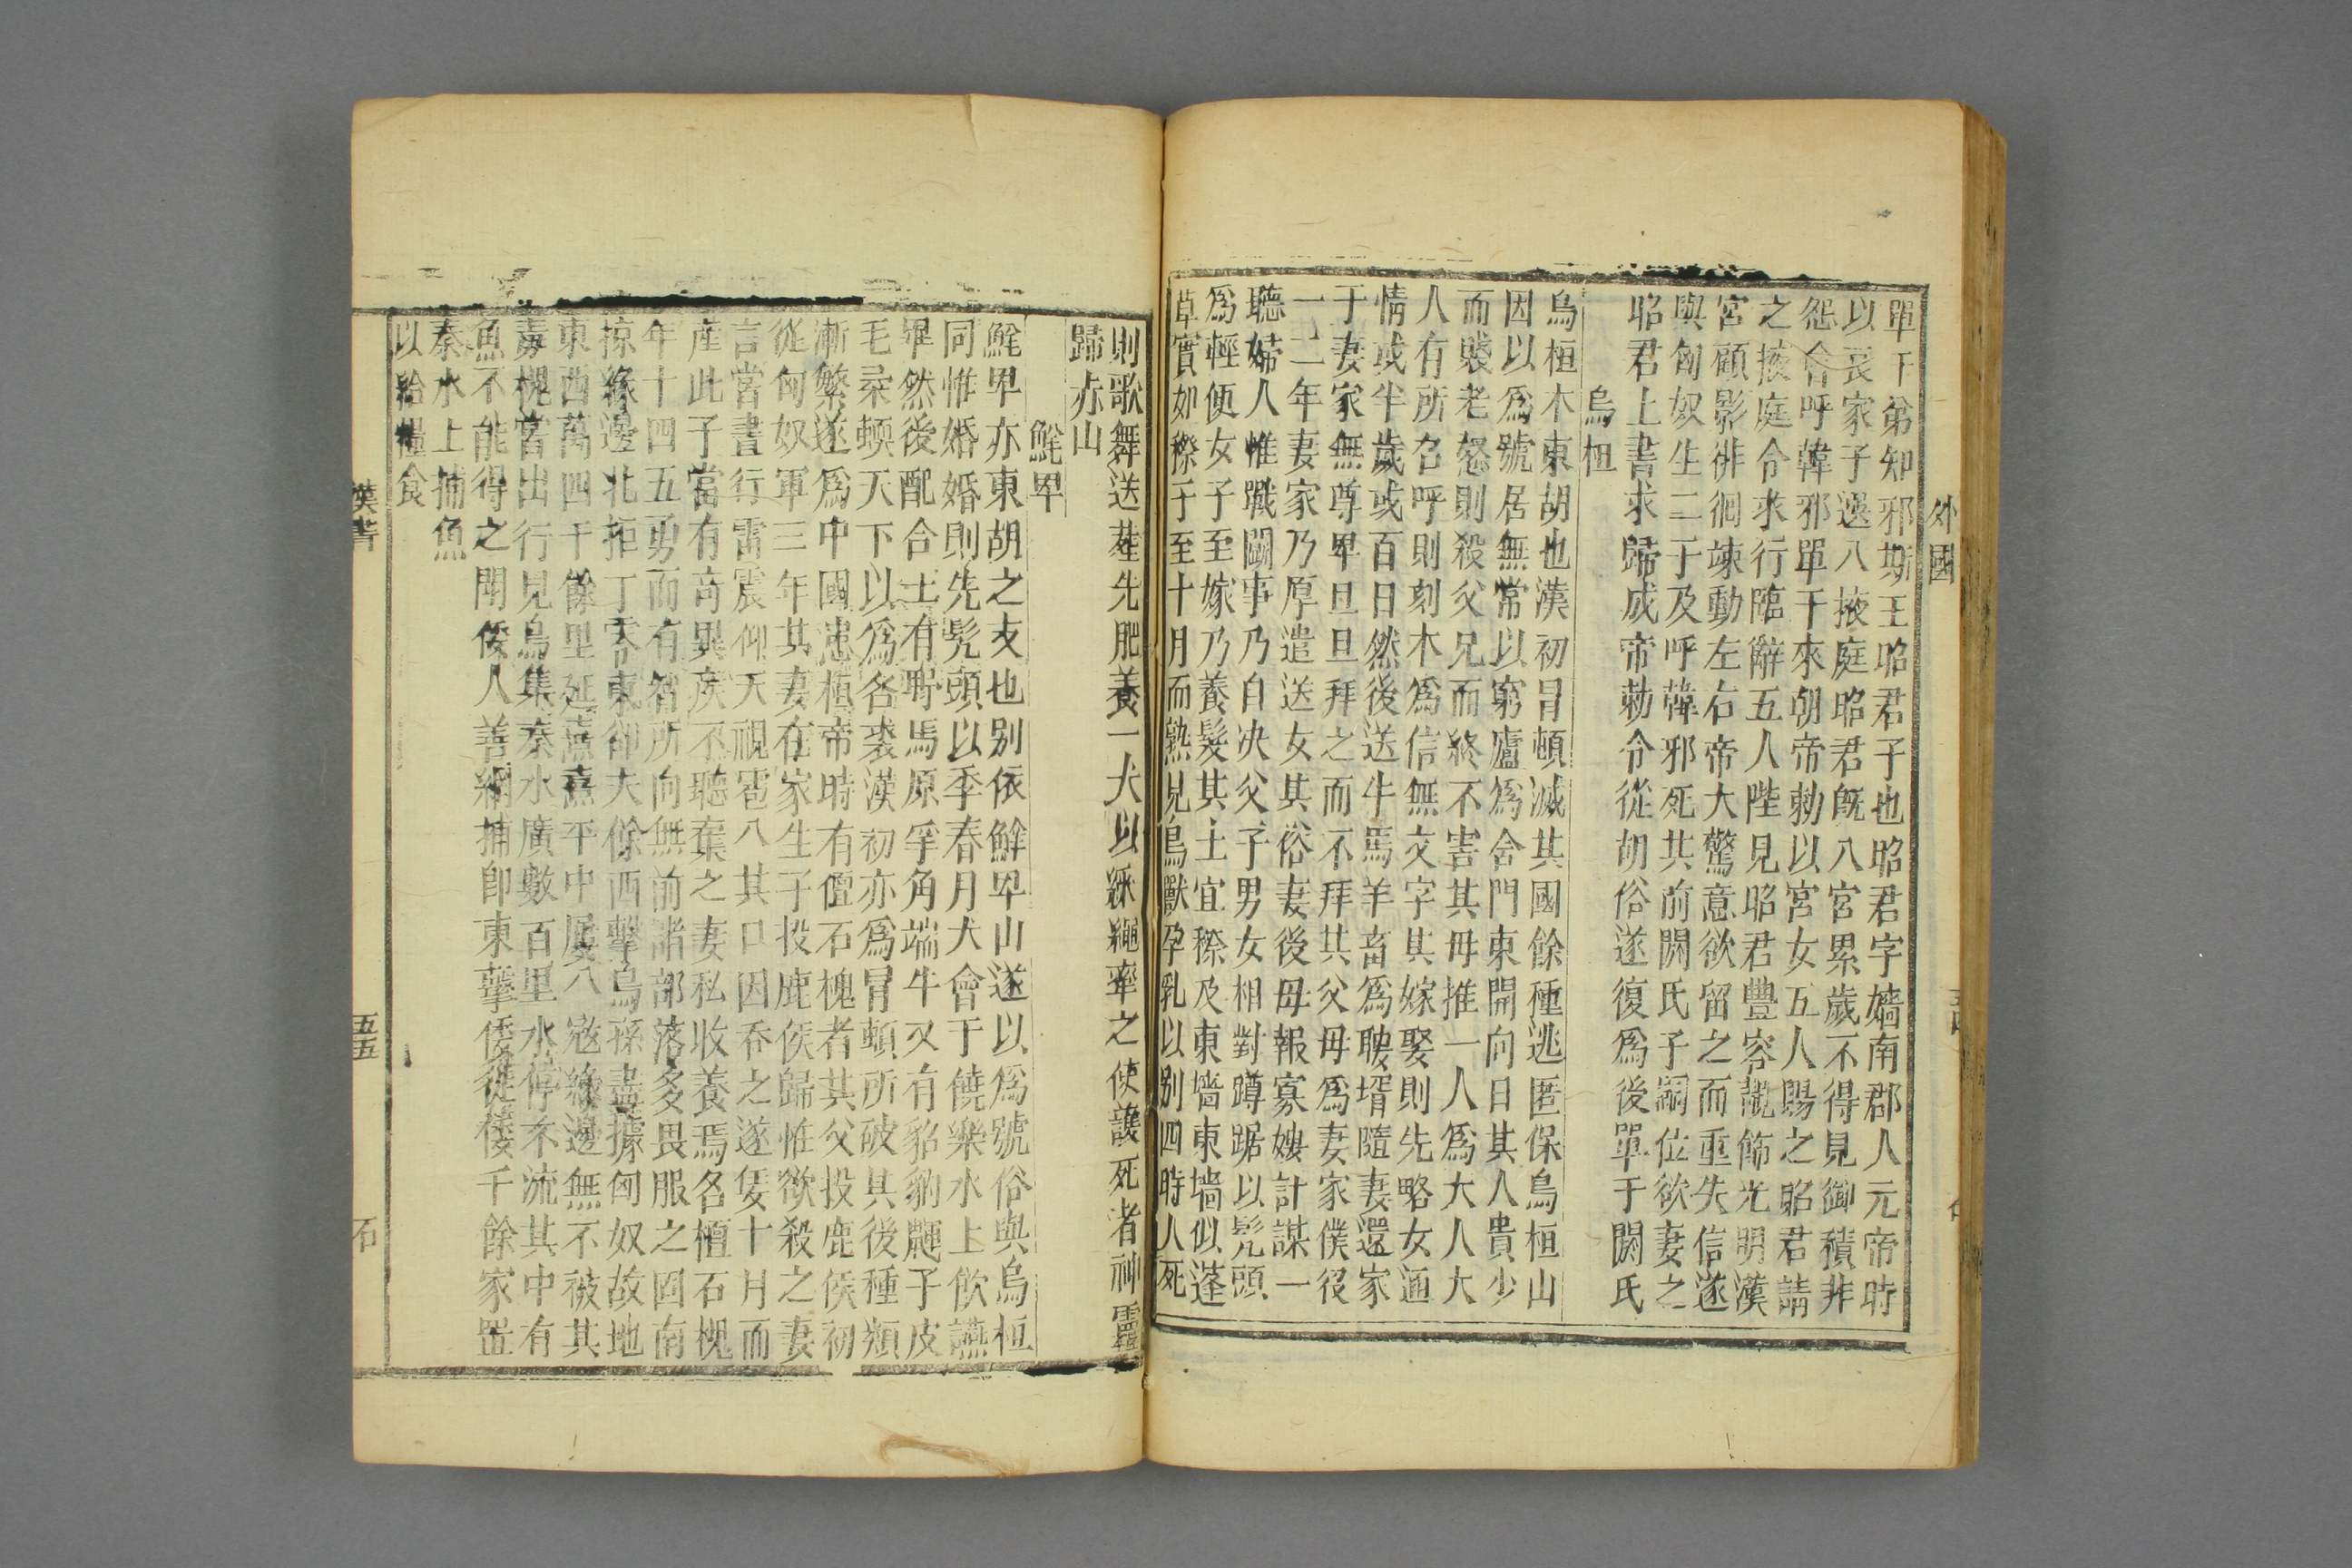 外國
單于弟知邪斯王昭君子也昭君字嬙南郡人元帝時
以良家子選入掖庭昭君旣入宮累歲不得見御積非
怨會呼韓邪單于來朝帝勅以宮女五人賜之昭君請
之掖庭令求行臨辭五人陛見昭君豐容靚飾光明漢
宮顧影徘徊竦動左右帝大驚意欲留之而重失信遂
與匈奴生二子及呼韓邪死其前閼氏子嗣位欲妻之
昭君上書求歸成帝勅令從胡俗遂復爲後單于閼氏
烏桓
烏桓本東胡也漢初冒頓滅其國餘種逃匿保烏桓山
因以爲號居無常以穹廬爲舍門東開向日其人貴少
而賤老怒則殺父兄而終不害其母推一人爲大人大
人有所召呼則刻木爲信無文字其嫁娶則先略女通
情或半歲或百日然後送牛馬羊畜爲聘壻隨妻還家
于妻家無尊卑旦旦拜之而不拜其父母爲妻家僕役
一二年妻家乃厚遣送女其俗妻後母報寡嫂計謀一
聽婦人惟戰鬭事乃自决父子男女相對蹲踞以髡頭
爲輕便女子至嫁乃養髮其土宜穄及東墻東墻似蓬
草實如穄子至十月而熟見鳥獸孕乳以别四時人死
則歌舞送葬先肥養一犬以綵繩牽之使護死者神靈
歸赤山
鮮卑
鮮卑亦東胡之支也别依鮮卑山遂以爲號俗與烏桓
同惟婚婚則先髡頭以季春月大會于饒樂水上飲讌
畢然後配合土有野馬原羊角端牛又有貂豹鼲子皮
毛柔蝡天下以爲名裘漢初亦爲冒頓所破其後種類
漸繁遂爲中國患桓帝時有檀石槐者其父投鹿侯初
從匈奴軍三年其妻在家生子投鹿侯歸惟欲殺之妻
言嘗晝行雷震仰天視雹入其口因吞之遂娠十月而
產此子當有奇異族不聽棄之妻私收養焉名檀石槐
年十四五勇而有智所向無前諸部落多畏服之因南
掠緣邊北拒丁零東卻夫餘西擊烏孫盡據匈奴故地
東西萬四千餘里延熹熹平中屢入寇緣邊無不被其
毒槐嘗出行見烏集秦水廣數百里水停不流其中有
魚不能得之聞倭人善網捕卽東擊倭徙倭千餘家置
秦水上捕魚
以給糧食
漢書
五五
石